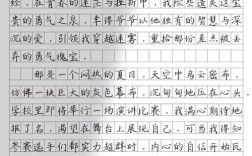 经，在青春的迷茫与挫折中，我险些遗失这宝
贵的勇气之泉，幸得爷爷以他独有的智慧与深
沉的爱，引领我穿越迷雾，重拾那份差点被丢
弃的勇气瑰宝。
那是一个闷热的夏日，天空中乌云密布，
仿佛一块巨大的灰色幕布，沉甸甸地压在心头。
学校里即将举行一场演讲比赛，我满心期待地
报了名，渴望在舞台上展现自己。可当我得知
参赛选手们都实力超群时，内心的自信开始民